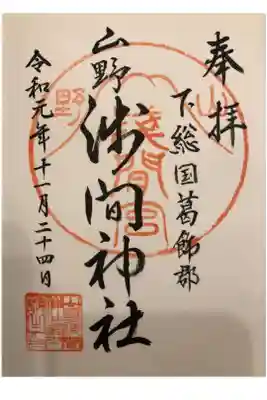 奉拝
下総国葛飾郡
山野
浅間神社
令和元年十一月二十四日
山野
淺間宮